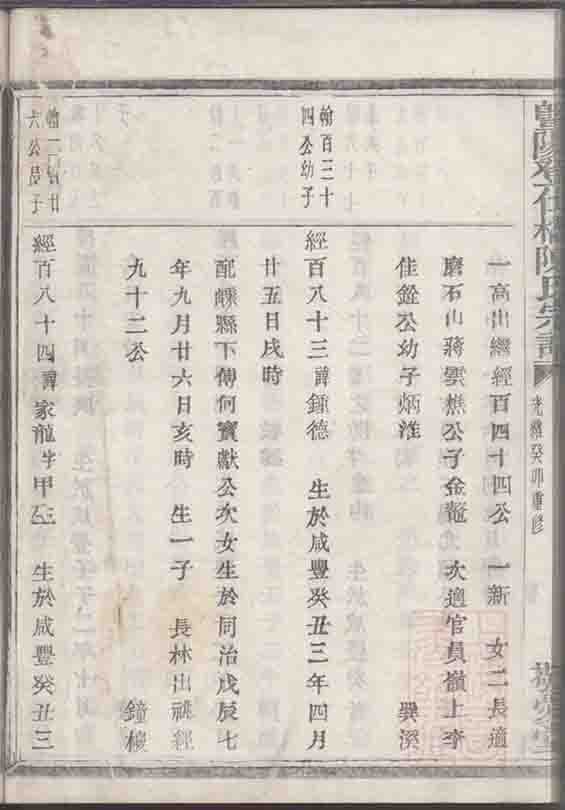 光緒癸卯重修
一高出繼經百四十四公　一新　女二長適
磨石山蔣雲樵公子金鼇　次適官員嶺上李
佳銓公幼子炳淮　巽溪
翰百三十
四公幼子
經百八十三諱鍾德　生於咸豐癸丑三年四月
廿五日戌時
配嵊縣下傅何寶獻公次女生於同治戊辰七
年九月廿六日亥時　生一子　長林出祧經
九十二公　鐘樓
六公長子
經百八十四諱家龍字甲　生於咸豐癸丑三